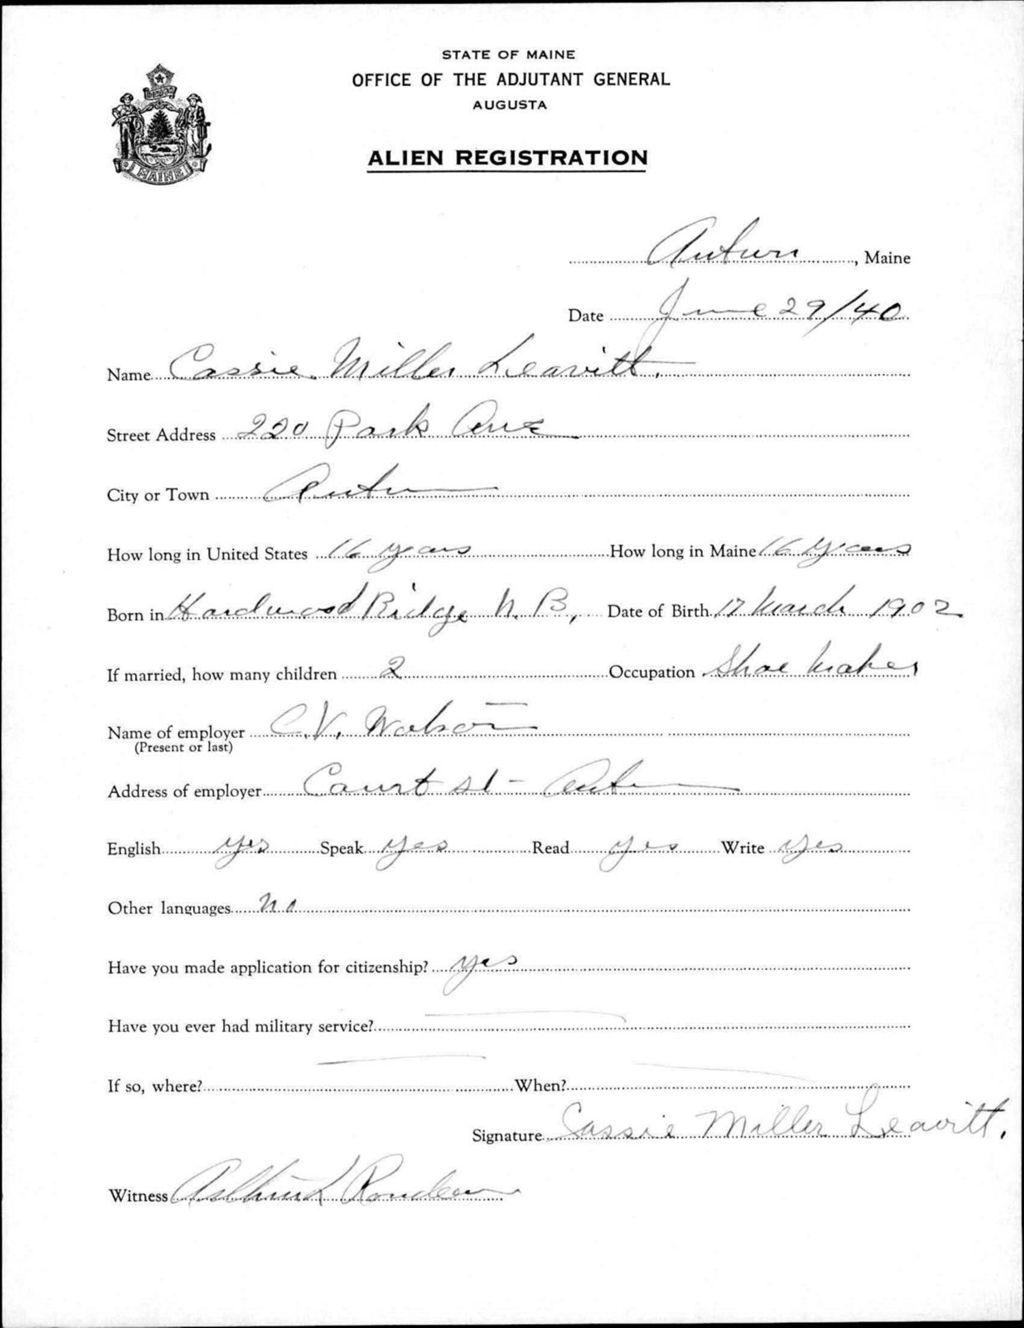 STATE OF MAINE
OFFICE OF THE ADJUTANT GENERAL
AUGUSTA
ALIEN REGISTRATION
MAINE
Auburn, Maine
Date June 29/40
Name Cassie Miller Leavitt.
Street Address 220 Park Ave
City or Town Auburn
How long in United States 16 years How long in Maine 16 years
Born in Hardwood Ridge N. B, Date of Birth 17 March 1902
If married, how many children 2 Occupation Shoe Maker
Name of employer C. V. Watson
(Present or last)
Address of employer Court St - Auburn
English yes Speak yes Read yes Write yes
Other languages no
Have you made application for citizenship? yes
Have you ever had military service?
If so, where? When?
Signature Cassie Miller Leavitt.
Witness